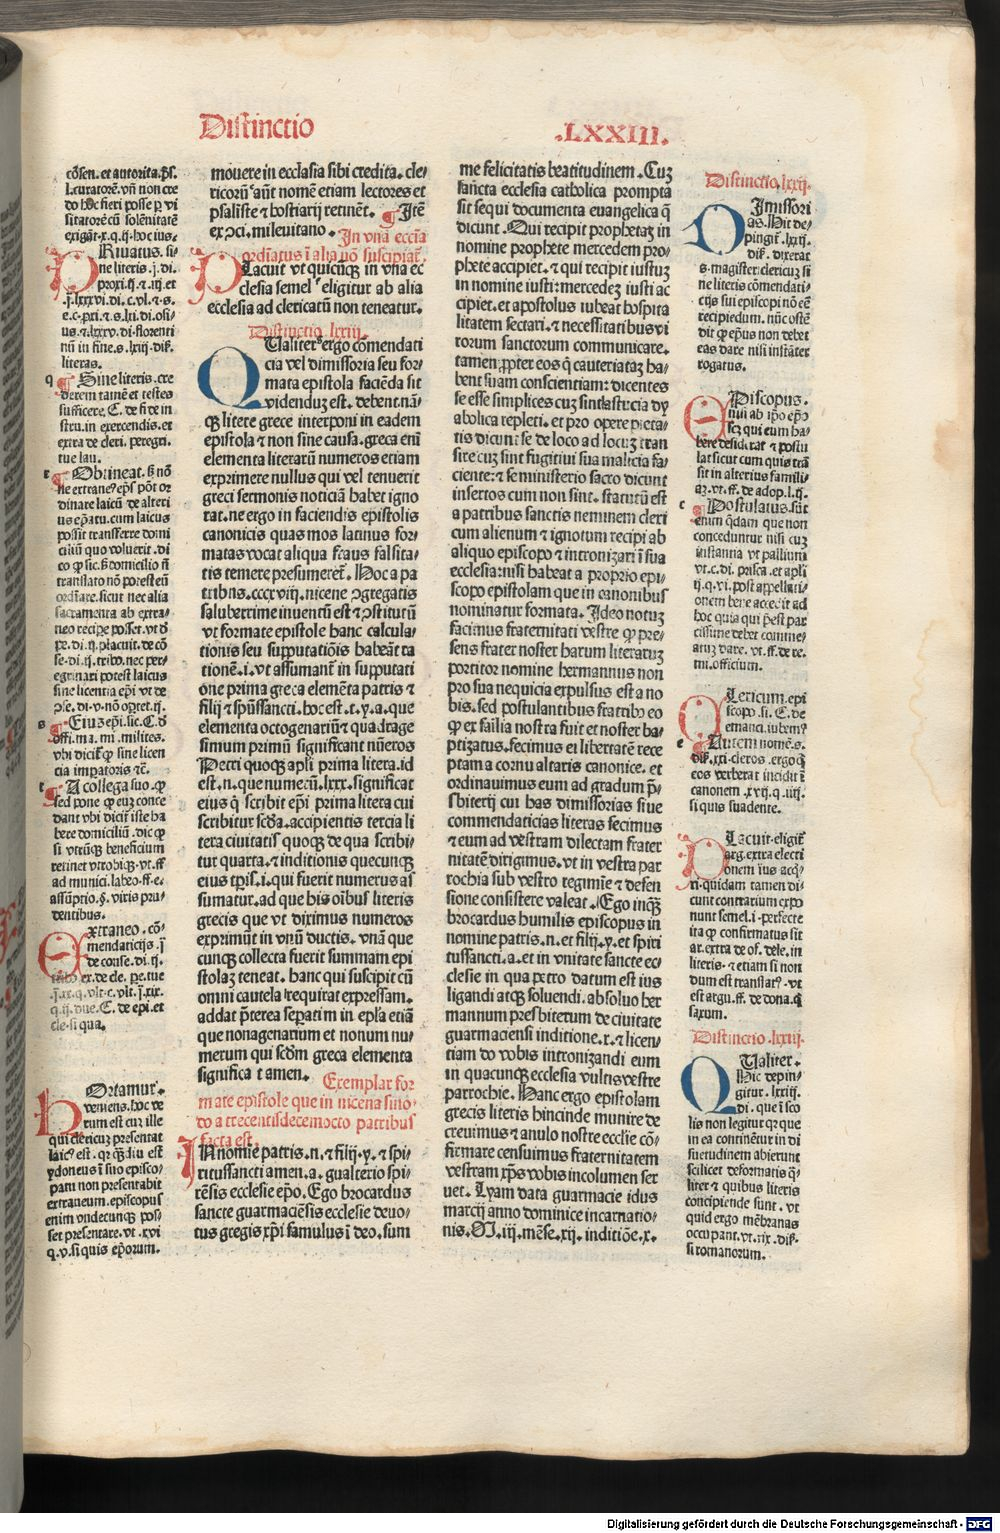 Distinctio
.LXXIII.
cõsen. et autorita. p̃s.
l. curatorẽ. vñ non cre
do hoc fieri posse ꝑ vi
sitatorẽ cũ solẽnitatẽ
exigãt. x. q. ij. hoc ius.
PRiuatus. si
ne literis. j. di.
proxi. ij. ⁊ iij. et
j. lxxxvi. di. c. vl. ⁊ s.
e. c. pri. ⁊ s. lxi. di. osi
us. ⁊ lxxv. di. florenti
nũ in fine. s. lxiij. dis̃.
literas.
q ¶ Sine literis. cre
derem tamẽ et testes
sufficere. C. de fi de in
stru. in exercendis. et
extra de cleri. peregri.
tue lau.
r ¶ Obtineat. s̃ nõ
ne extrane9 ep̃s põt or
dinare laicũ de alteri
us ep̃atu. cum laicus
possit transferre domi
ciliũ quo voluerit. di
co ꝙ sic. s̃ domicilio ñ
translato nõ potest eũ
ordĩare. sicut nec alia
sacramenta ab extra
neo recipe posset. vt d̃
pe. di. ij. placuit. de cõ
se. di. ij. tribo. nec per
egrinari potest laicus
sine licentia ep̃i vt de
ↄse. di. v. nõ oportet. ij.
s ¶ Ei9 ep̃i. sic. C. d̃
offi. ma. mi. milites.
vbi dicit̃ ꝙ sine licen
cia imperatoris ⁊c̃.
t ¶ A collega suo. ꝙ
sed pone ꝙ eũ conce
dant vbi dicit̃ iste ha
bere domiciliũ. dic ꝙ
si vtrũqꝫ beneficium
retinet vtrobiqꝫ. vt. ff
ad munici. labeo. ff. e.
assũptio. §. viris pru
dentibus.
Extraneo. cõ
mendaticijs. j̃
de conse. di. ij.
ex. de cle. pe. tue
C. de epi. et
cle. si qua.
HOrtamur.
veniens. hoc ve
rum est cũ ille
qui clericus presentat
laic9 est. qr̃ qꝫdiu est
ydoneus ĩ suo episco
patu non presentabit
extraneum. episcopus
enim vndecunqꝫ pos
set presentare. vt. xvi
q. v. si quis ep̃orum.
mouere in ecclesia sibi credita. cle
ricorũ aũt nomẽ etiam lectores et
psalĩste ⁊ hostiarij retinẽt. ¶ Itẽ
ex ↄci. mileuitano. In vna ecc̃ia
ordĩatus ĩ alia nõ suscipiat̃.
PLacuit vt quicũqꝫ in vna ec
clesia semel eligitur ab alia
ecclesia ad clericatũ non teneatur.
Distinctio lxxiij.
QUaliter ergo cõmendati
cia vel dimissoria seu for
mata epistola faciẽda sit
videnduꝫ est. debent. nã
qꝫ litere grece interponi in eadem
epistola ⁊ non sine causa. greca enĩ
elementa literarũ numeros etiam
exprimere nullus qui vel tenuerit
greci sermonis noticiã habet igno
rat. ne ergo in faciendis epistolis
canonicis quas mos latinus for
matas vocat aliqua fraus falsita
tis temere presumeret̃. Hoc a pa
tribus. cccxviij. nicene ↄgregatis
saluberrime inuentũ est ⁊ ↄstitutũ
vt formate epistole hanc calcula
tionis seu supputatiõis habeãt ra
tionẽ. i. vt assumant̃ in supputati
one prima greca elemẽta patris ⁊
filij ⁊ sp̃ussancti. hoc est. r. y. a. que
elementa octogenariũ ⁊ quadrage
simum primũ significant nũeros
Petri quoqꝫ ap̃li prima litera. id
est. n. que numerũ. lxxx. significat
eius ꝙ scribit ep̃i prima litera cui
scribitur scd̃a. accipientis tercia li
tera ciuitatis quoqꝫ de qua scribi
tur quarta. ⁊ inditionis quecunqꝫ
eius tp̃is. i. qui fuerit numerus as
sumatur. ad que his oĩbus literis
grecis que vt diximus numeros
exprimũt in vnũ ductis. vnã que
cunqꝫ collecta fuerit summam epi
stolaꝫ teneat. hanc qui suscipit cũ
omni cautela requirat expressam.
addat p̃terea seꝑatim in ep̃la etiã
que nonagenarium et nonum nu
merum qui scd̃m greca elementa
significat amen. Exemplar for
mate epistole que in nicena sino
do a trecentisdecemocto patribus
facta est.
IN nomĩe patris. n. ⁊ filij. y. ⁊ spi
ritussancti amen. a. gualterio spi
rẽsis ecclesie ep̃o. Ego brocardus
sancte guarmaciẽsis ecclesie deuo
tus gregis xp̃i famulus ĩ deo. sum
me felicitatis beatitudinem. Cuꝫ
sancta ecclesia catholica prompta
sit sequi documenta euangelica q̃
dicunt. Qui recipit prophetaꝫ in
nomine prophete mercedem pro
phete accipiet. ⁊ qui recipit iustuꝫ
in nomine iusti: mercedeꝫ iusti ac
cipiet. et apostolus iubeat hospita
litatem sectari. ⁊ necessitatibus vi
rorum sanctorum communicare.
tamen ꝓpter eos q̃ cauteriataꝫ ha
bent suam conscientiam: dicentes
se esse simplices cuꝫ sint astucia dy
abolica repleti. et pro opere pieta
tis dicunt se de loco ad locuꝫ tran
sire cuꝫ sint fugitiui sua malicia fa
ciente: ⁊ se ministerio sacro dicunt
insertos cum non sint. statutũ est
a patribus sanctis neminem cleri
cum alienum ⁊ ignotum recipi ab
aliquo episcopo ⁊ intronizari ĩ sua
ecclesia: nisi habeat a proprio epi
scopo epistolam que in canonibus
nominatur formata. Ideo notuꝫ
facimus fraternitati vestre ꝙ pre
sens frater noster harum literaruꝫ
portitor nomine hermannus non
pro sua nequicia expulsus est a no
bis. sed postulantibus fratribꝰ eo
ꝙ ex familia nostra fuit et noster ba
ptizatus. fecimus ei libertatẽ rece
ptam a cornu altaris canonice. et
ordinauimus eum ad gradum p̃s
biterij cui has dimissorias siue
commendaticias literas fecimus
⁊ eum ad vestram dilectam frater
nitatẽ dirigimus. vt in vestra par
rochia sub vestro regimĩe ⁊ defen
sione consistere valeat. Ego inqꝫ
brocardus humilis episcopus in
nomine patris. n. et filij. y. et spiri
tussancti. a. et in vnitate sancte ec
clesie in qua petro datum est ius
ligandi atqꝫ soluendi. absoluo her
mannum presbiterum de ciuitate
guarmaciensi inditione. x. ⁊ licen
tiam do vobis intronizandi eum
in quacunqꝫ ecclesia vultis vestre
parrochie. Hanc ergo epistolam
grecis literis hincinde munire de
creuimus ⁊ anulo nostre ecclie cõ
firmare censuimus fraternitatem
vestram xp̃s vobis incolumen ser
uet. Lxam data guarmacie idus
marcij anno dominice incarnatio
nis. M. iij. mẽse. xij. inditiõe. x.
Distinctio. lxxij.
DImissori
as. Hit de
pingit̃. lxxij.
dis̃. dixerat
s. magister clericuꝫ si
ne literis cõmendati
cijs sui episcopi nõ eẽ
recipiedum. nũc ostẽ
dit ꝙ ep̃us non debet
eas dare nisi instãter
rogatus.
EPiscopus.
nui ab ip̃o ep̃o
seꝫ qui eum ha
bere desiderat ⁊ postu
lat sicut cum quis trã
sit in alterius famili
aꝫ. vt. ff. de adop. l. ij.
c ¶ Postulatus. sũt
enim q̃dam que non
conceduntur nisi cuꝫ
instantia vt palliũm
vt. c. di. prisca. et apli
ij. q. vi. post appellati
onem bene accedit ad
hoc quia qui p̃est par
cissime debet commẽ
atuꝫ dare. vt. ff. de re.
mi. officium.
CLericum. epi
scopo. si. C. de
emanci. iubem9
e ¶ Autem nomẽ. s.
dis̃. xxi. cleros. ergo q̃
eos verberat incidit ĩ
canonem. xvij. q. iiij.
si quis suadente.
PLacuit. eligit̃
arg. extra electi
onem ĩus acq̃
ri. quidam tamen di
cunt contrarium expo
nunt semel. i. perfecte
ita ꝙ confirmatus sit
ar. extra de of. dele. in
literis. ⁊ etiam si non
dum est translat9. vt
est argu. ff. de dona. q̃
sarum.
Distinctio. lxxiij.
QUaliter.
Hic depin
gitur. lxxiij.
di. que ĩ sco
lis non legitur qr̃ que
in ea continẽtur in di
suetudinem abierunt
scilicet de formatis q̃
liter ⁊ quibus literis
concipiende sunt. vt
quid ergo mẽbranas
occupant. vt. xix. dis̃.
si romanorum.
Digitalisierung gefördert durch die Deutsche Forschungsgemeinschaft - DFG